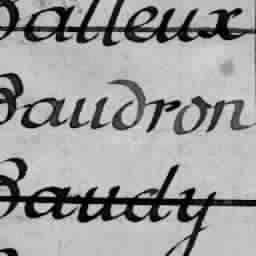 Balleux
Baudron
Baudy